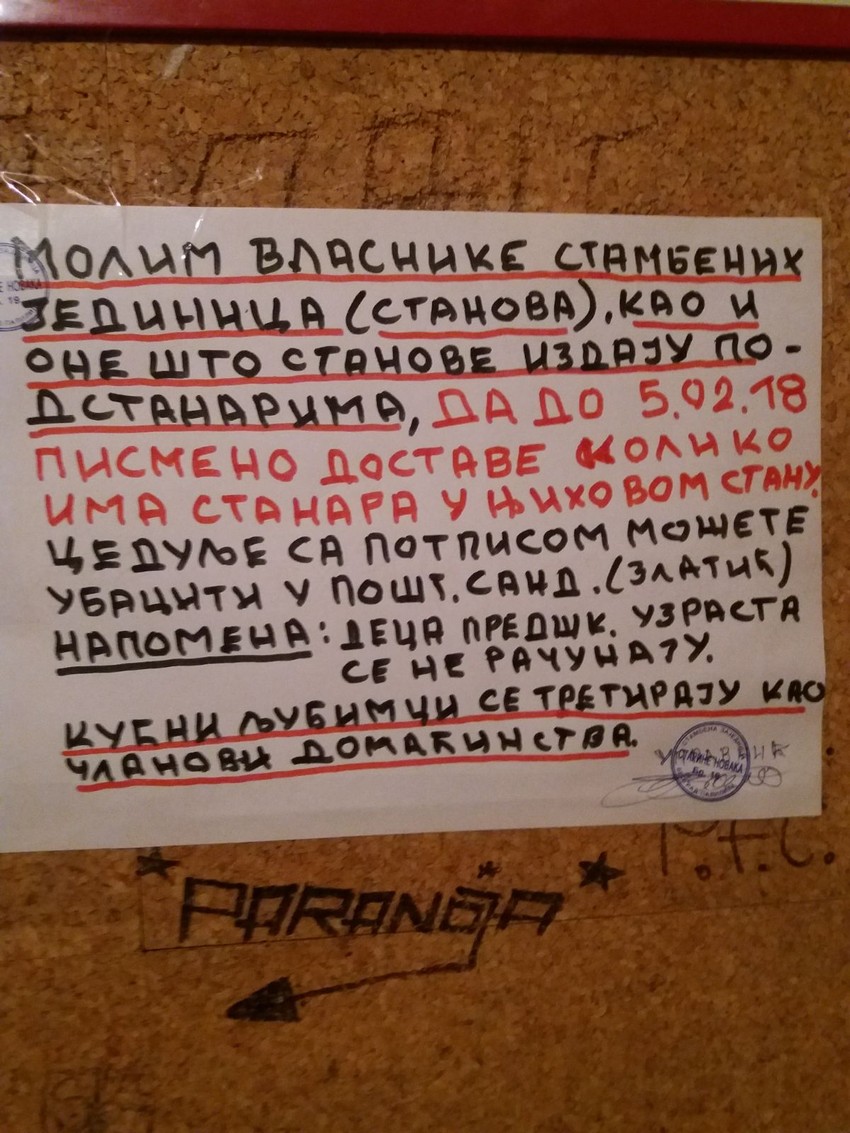 МОЛИМ ВЛАСНИКЕ СТАМБЕНИХ
ЈЕДИНИЦА (СТАНОВА), КАО И
ОНЕ ШТО СТАНОВЕ ИЗДАЈУ ПО-
ДСТАНАРИМА, ДА ДО 5.02.18
ПИСМЕНО ДОСТАВЕ КОЛИКО
ИМА СТАНАРА У ЊИХОВОМ СТАНУ.
ЦЕДУЉЕ СА ПОТПИСОМ МОЖЕТЕ
УБАЦИТИ У ПОШТ. САНД. (ЗЛАТИЋ)
НАПОМЕНА: ДЕЦА ПРЕДШК. УЗРАСТА
СЕ НЕ РАЧУНАЈУ.
КУЋНИ ЉУБИМЦИ СЕ ТРЕТИРАЈУ КАО
ЧЛАНОВИ ДОМАЋИНСТВА.
НОВАКА
19
PARANOJA